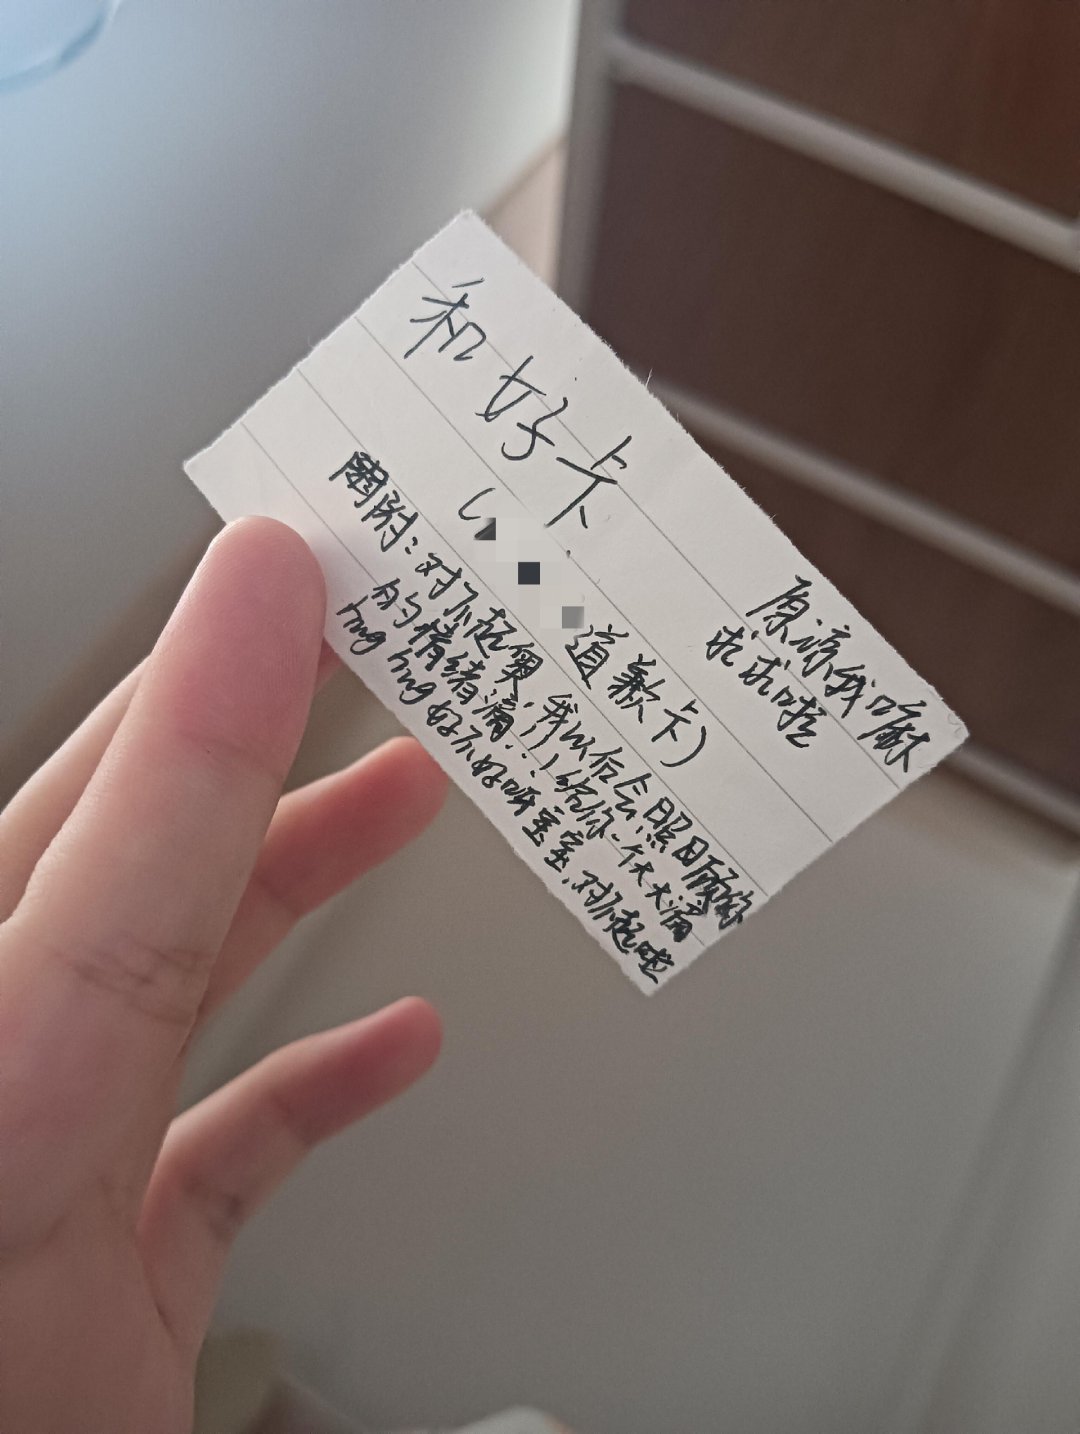 和好卡
(
道歉卡)
原谅我嘛
求求啦
附:对不起奥,我以后会照顾你
的情绪滴..!!给你一个大大滴
hug hug 好不好呀宝宝,对不起啦